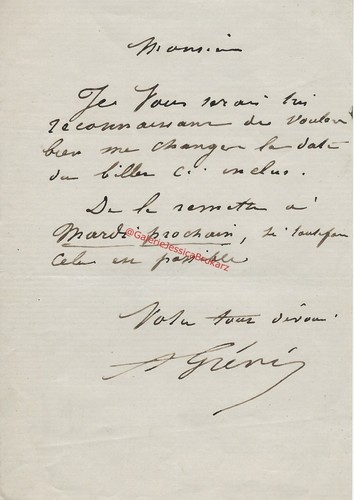 Monsieur
Je vous serai très
reconnaissant de vouloir
bien me changer la date
du billet ci inclus.
De la remettre à
Mardi prochain, si toutefois
cela est possible
@GalerieJessicaBrdkarz
Votre tout dévoué
A Grévin